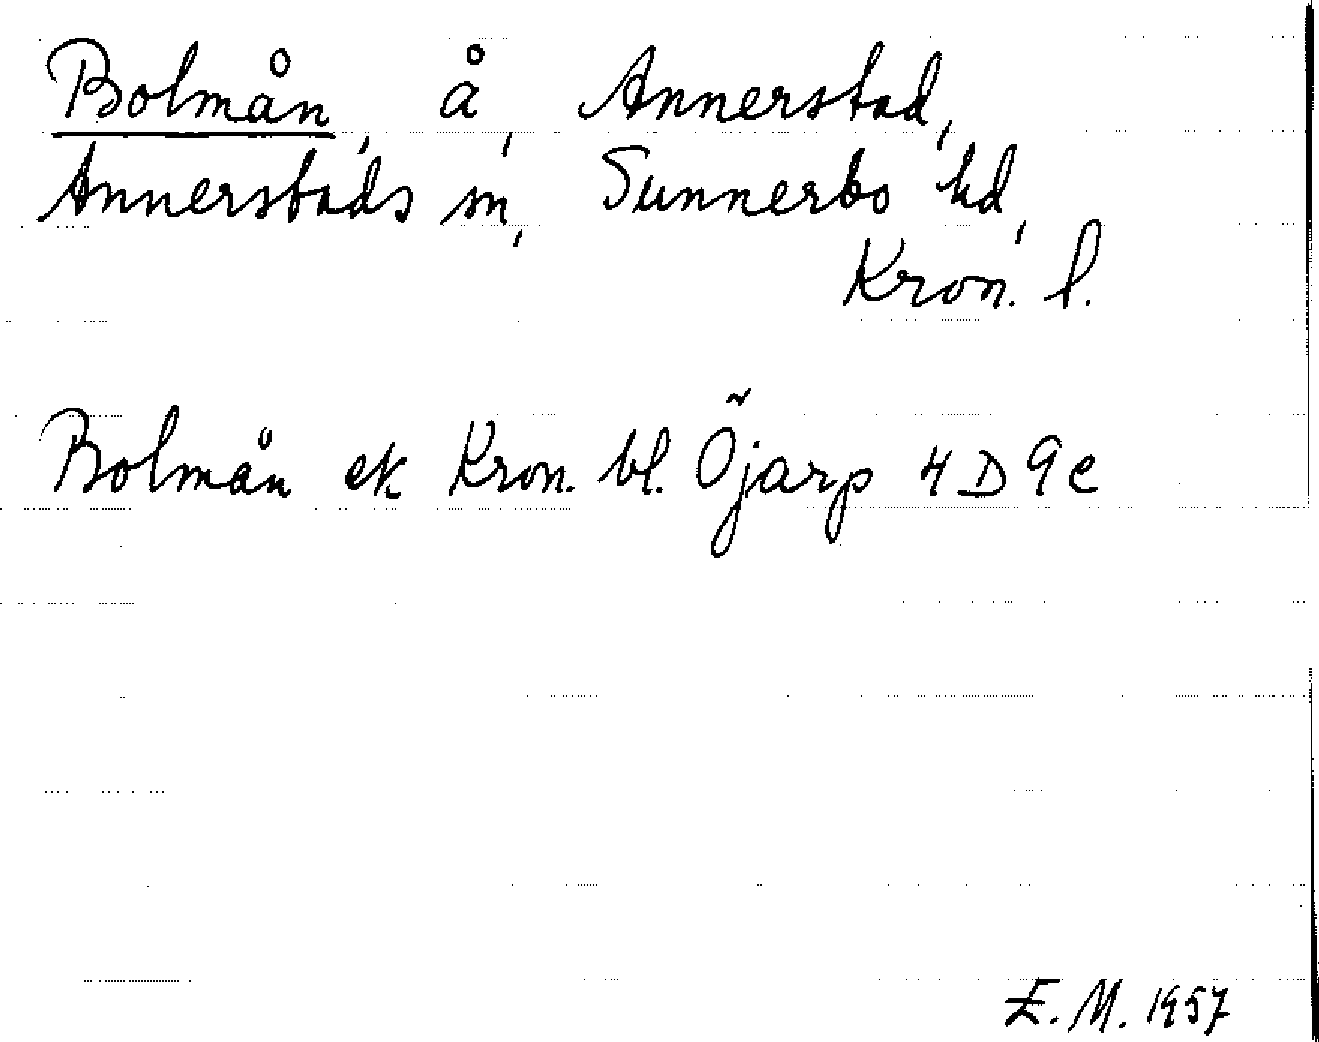 Bolmån, å, Annerstad,
Annerstads sn, Sunnerbo hd,
Kron. l.
Bolmån ek Kron. bl. Öjarp 4 D 9 c
E. M. 1957